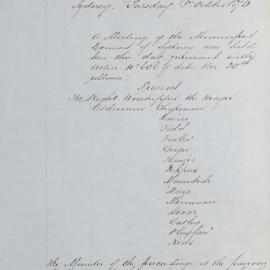 Sydney, Tuesday, 3 October 1876
A Meeting of the Municipal
Council of Sydney was held
here this day pursuant with
notice No 606 of date the 30th
ultimo.
Present
The Right Worshipful the Mayor
Aldermen Chapman
Moore
Field
Fowler
Green
Kippax
Macintosh
Merriman
Oatley
Playfair
The Minutes of the proceedings at the previous